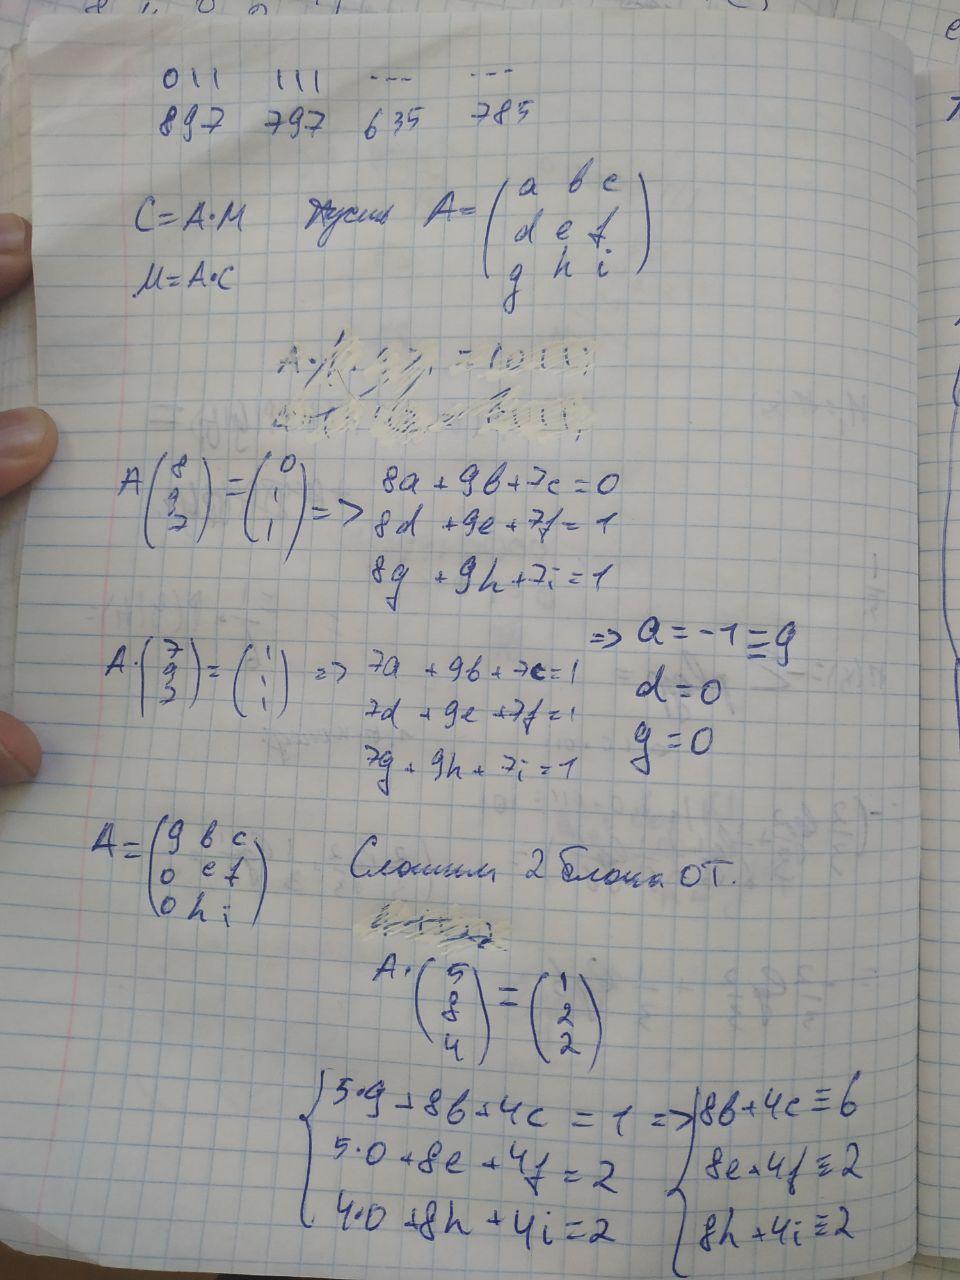 011 111 --- ---
897 797 635 785
C=A·M Пусть A=(a b c
d e f
g h i)
M=A·C
A(8
9
7)=(0
1
1)=>
8a+9b+7c=0
8d+9e+7f=1
8g+9h+7i=1
A·(7
9
7)=(1
1
1)=>
7a+9b+7c=1
7d+9e+7f=1
7g+9h+7i=1
=> a=-1≡9
d=0
g=0
A=(9 b c
0 e f
0 h i)
Сложим 2 блока ОТ.
A·(5
8
4)=(1
2
2)
5·9+8b+4c=1 => 8b+4c≡6
5·0+8e+4f=2 8e+4f≡2
4·0+8h+4i=2 8h+4i≡2